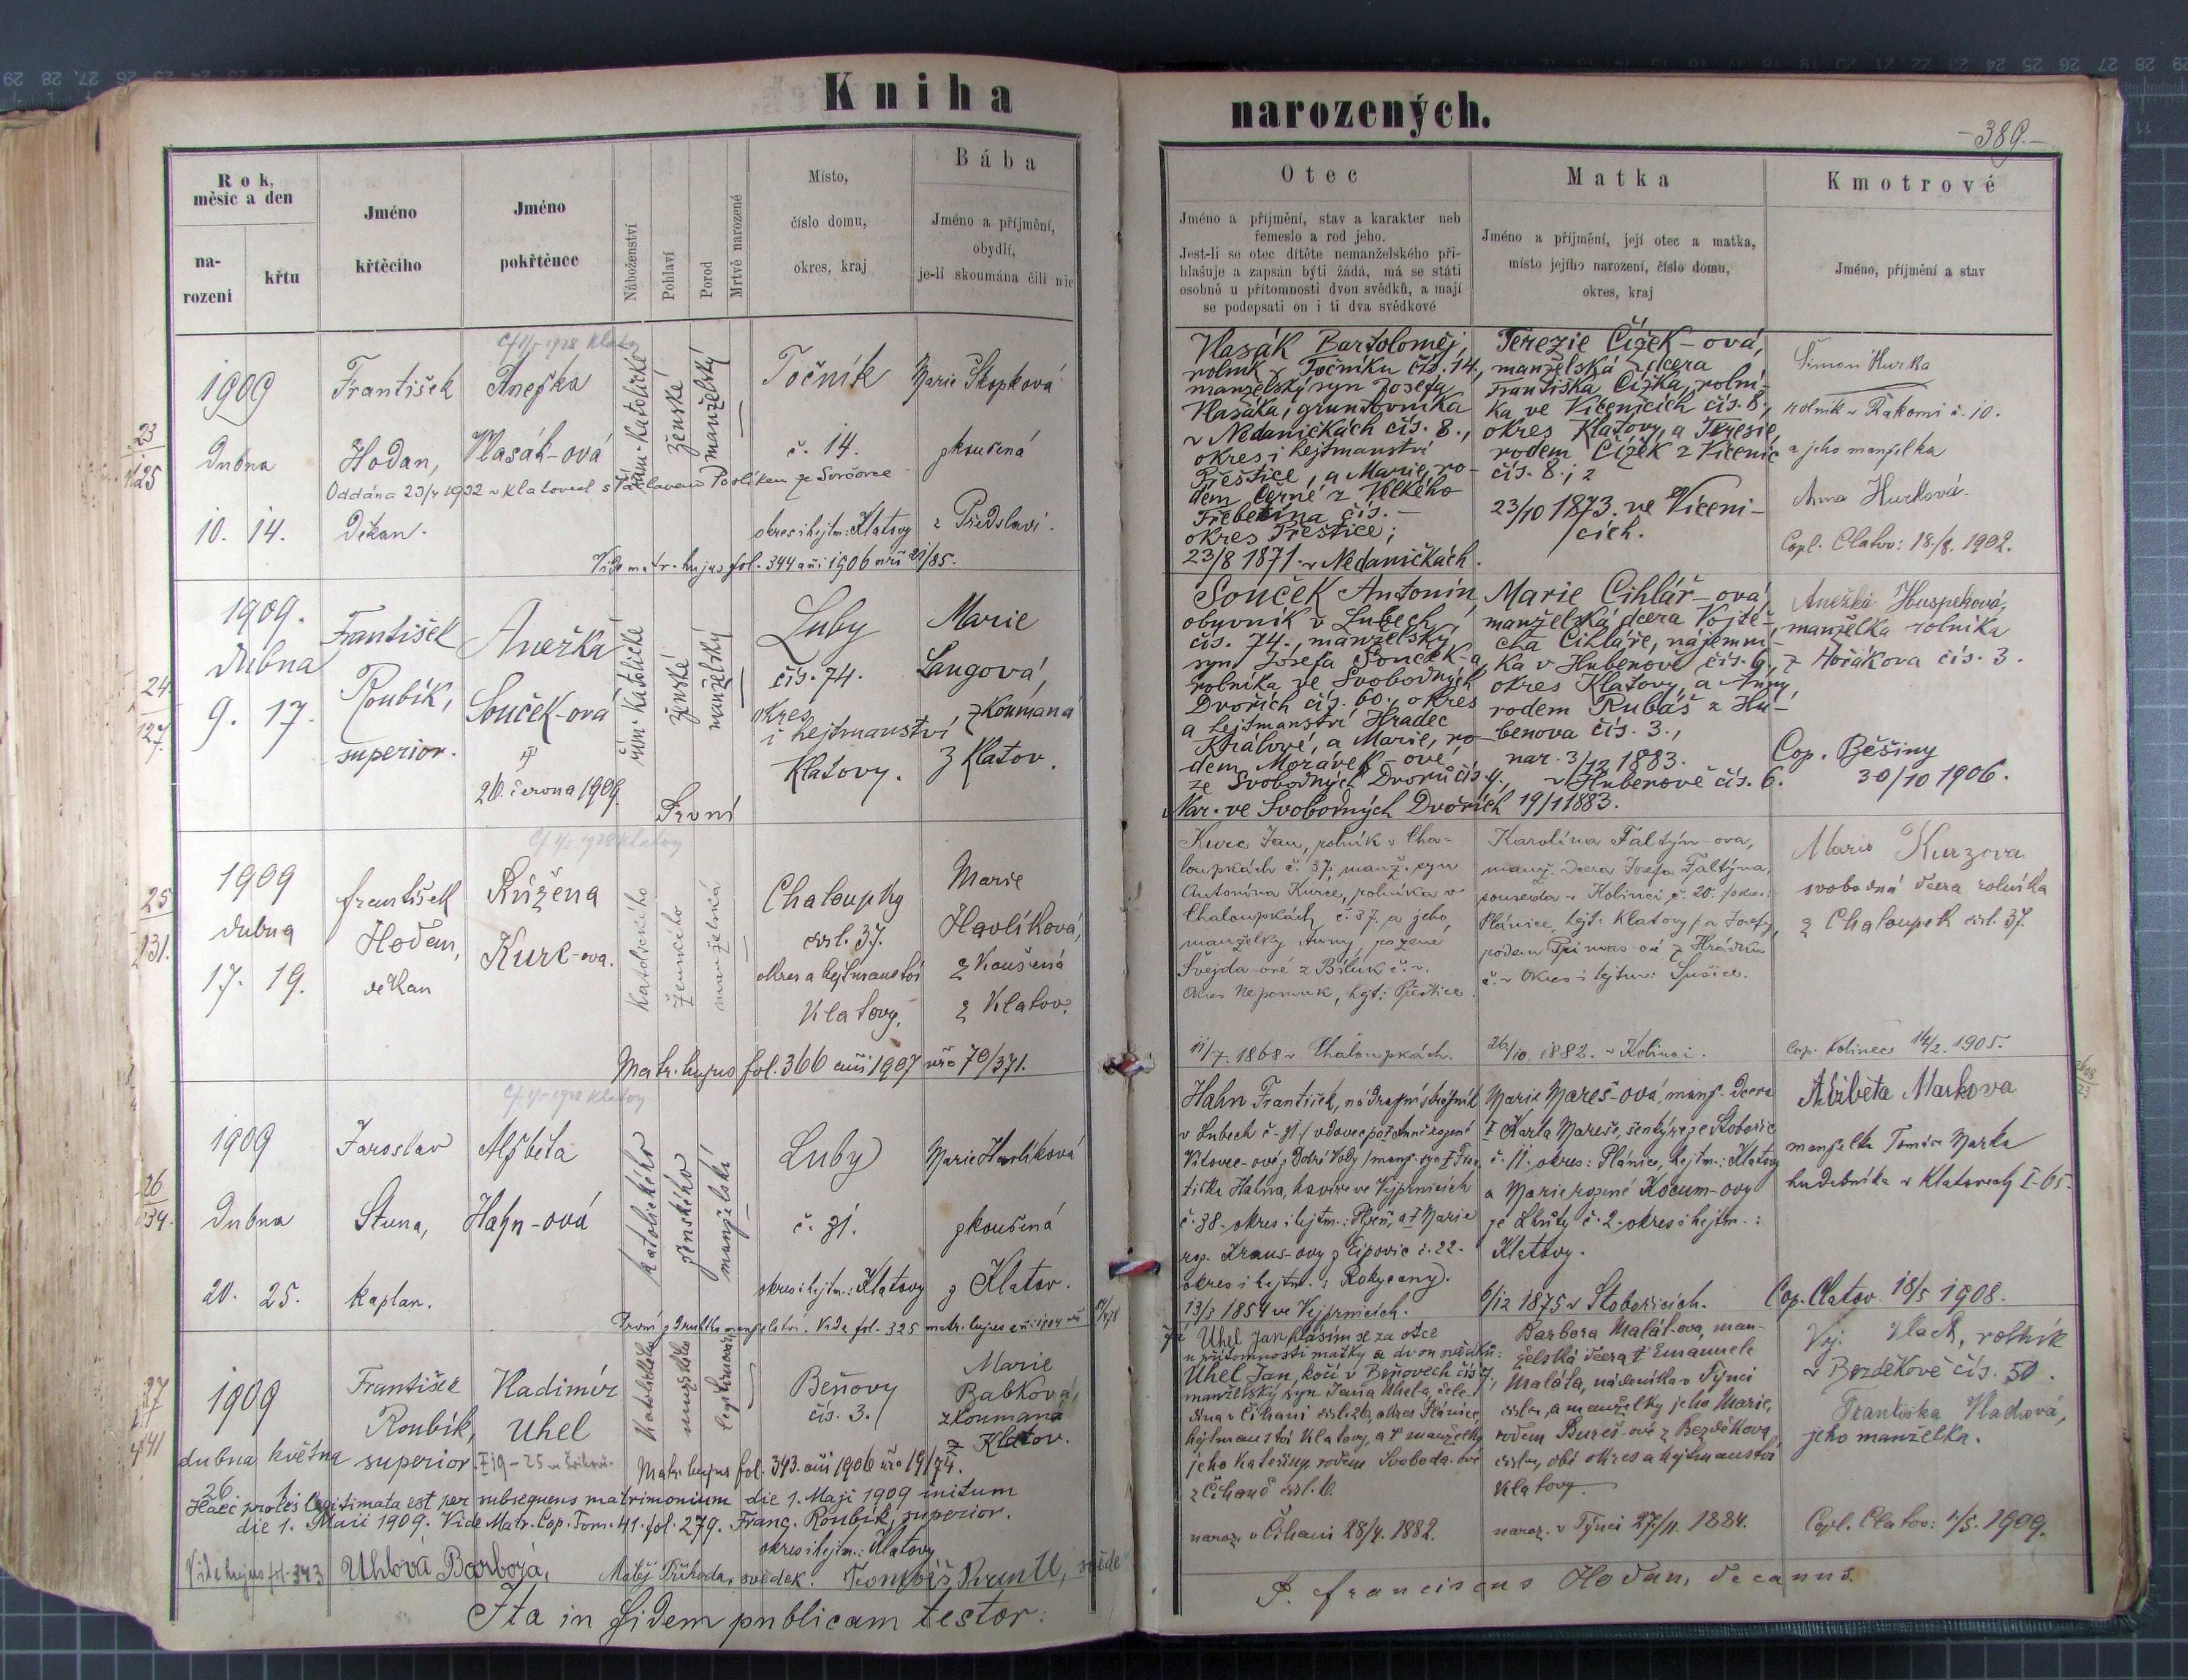 Kniha
narozených.
-389.-
Rok,
měsíc a den
na-
rozeni
křtu
Jméno
křtěcího
Jméno
pokřtěnce
Náboženství
Pohlaví
Porod
Mrtvě narozené
Místo,
číslo domu,
okres, kraj
Bába
Jméno a příjmění,
obydlí,
je-li skoumána čili nic
Otec
Jméno a příjmění, stav a karakter neb
řemeslo a rod jeho.
Jest-li se otec dítěte nemanželského při-
hlašuje a zapsán býti žádá, má se státi
osobně u přítomnosti dvou svědků, a mají
se podepsati on i ti dva svědkové
Matka
Jméno a příjmění, její otec a matka,
místo jejího narození, číslo domu,
okres, kraj
Kmotrové
Jméno, příjmění a stav
23
125
1909
dubna
10. 14.
František
Hodan,
Děkan.
Cf 1/5 1928 Klatovy
Anežka
Vlasák-ová
řím. katolické
ženské
manželský
Točník
č. 14.
okres i hejtm: Klatovy
Marie Skopková
zkoušená
z Předslavi.
Vide matr. hujus fol. 344 ani 1906 nro 21/85.
Vlasák Bartoloměj,
rolník v Točníku čís. 14.,
manželský syn Josefa
Vlasáka, gruntovníka
v Nedaničkách čís. 8.,
okres i hejtmanství
Přeštice, a Marie, ro-
dem Černé z Velkého
Třebčína čís. -
okres Přeštice;
23/8 1871. v Nedaničkách.
Terezie Čížek-ová,
manželská dcera
Františka Čížka, rolní-
ka ve Vícenicích čís. 8.,
okres Klatovy, a Terezie,
rodem Čížek z Vícenic
čís. 8.;
23/10 1873. ve Víceni-
cích.
Šimon Hurka
rolník v Rakomi č. 10.
a jeho manželka
Anna Hurková.
Copl. Clatov: 18./8. 1902.
24
127.
1909.
dubna
9. 17.
František
Roubík,
superior.
Anežka
Souček-ová
26. června 1909.
řím. katolické
ženské
manželský
První
Luby
čís. 74.
okres
i hejtmanství
Klatovy.
Marie
Langová,
zkoumaná
z Klatov.
Souček Antonín,
obyvník v Lubech
čís. 74., manželský
syn Josefa Souček-a
rolníka ve Svobodných
Dvořích čís. 60., okres
a hejtmanství Hradec
Králové, a Marie, ro-
dem Morávek-ové,
ze Svobodných Dvorů čís. 4.,
Nar. ve Svobodných Dvořích 19/1 1883.
Marie Cihlář-ová,
manželská dcera Vojtě-
cha Cihláře, nájemní-
ka v Hubenově čís. 6.,
okres Klatovy, a Anny,
rodem Rubáš z Hu-
benova čís. 3.,
nar. 3/12 1883.
v Hubenově čís. 6.
manželka rolníka
Cop. Běšiny
30/10 1906.
25
131.
1909
dubna
17. 19.
František
Hodan,
děkan
Cf 1/5 1928 Klatovy
Růžena
Kurc-ova.
Katolického
ženského
manželská
Chaloupky
čísl. 37.
okres a hejtmanství
Klatovy.
Marie
Havlíková,
zkoušená
z Klatov.
Matr. hujus fol. 366 ani 1907 nro 70/371.
Kurc Jan, rolník v Cha-
loupkách č. 37, manž. syn
Antonína Kurce, rolníka v
Chaloupkách č. 37. a jeho
manželky Anny, rozené
Švejda-ové z
okres Nepomuk, hejt: Přeštice.
11/7. 1868 v Chaloupkách.
Karolína Faltýn-ova,
manž. dcera Josefa Faltýna,
souseda v Kolinci č. 20. /okres:
Plánice, hejt: Klatovy/ a Josefy,
rodem z Hrádku
č. - okres i hejtm: Sušice.
26/10. 1882. v Kolinci.
Marie Kurzova
svobodná dcera rolníka
z Chaloupek čísl. 37.
Cop. Kolinec 14/2. 1905.
26
134.
1909
dubna
20. 25.
Jaroslav
Stuna,
kaplan.
Cf 1/5 1928 Klatovy
Alžběta
Hahn-ová
katolického
ženského
manželské
Luby
č. 91.
okres i hejtm.: Klatovy
Marie Havlíková
zkoušená
z Klatov.
Hahn František,
v Lubech
č. 38. okres i hejtm.: Plzeň, a Marie
roz. Kraus-ovy z Ejpovic č. 22.
okres i hejtm.: Rokycany.
13/3 1854 ve Vejprnicích.
Marie Mareš-ová, manž. dcera
č. 11. okres: Plánice, hejtm.: Klatovy
a Marie rozené Kocum-ovy
ze Lhůty č. 2. okres i hejtm.:
Klatovy.
6/12 1875 v Stobořicích.
Alžběta Markova
manželka Tomáše Marka
hudebníka v Klatovech I-65.
Cop. Clatov 18/5 1908.
27
141
1909
dubna května
26. 1.
František
Roubík,
superior.
Vladimír
Uhel
Katolického
mužského
legitimovaný
Beňovy
čís. 3.
Marie
Babková,
zkoumaná
z Klatov.
Matr. hujus fol. 343. ani 1906 nro 19/74.
Haec proles legitimata est per subsequens matrimonium die 1. Maji 1909 initum
die 1. Maii 1909. Vide Matr. Cop. Tom. 41. fol. 279. Franc. Roubík, superior.
okres i hejtm.: Klatovy
Vide hujus fol. 343
Uhlová Barbora,
Matěj Příhoda, svědek.
Já Uhel Jan hlásím se za otce
u přítomnosti matky a dvou svědků:
Uhel Jan, kočí v Beňovech čís 3,
manželský syn Jana Uhela, čele-
dína v Čihani čísl. 26, okres Plánice,
hejtmanství Klatovy, a manželky
jeho Kateřiny, rodem Svoboda-ové
z Čihaně čísl. 6.
naroz. v Čihani 28/4. 1882.
Barbora Malát-ova, man-
želská dcera Emanuele
Maláta, nádeníka v Týnci
a manželky jeho Marie,
rodem Bureš-ové z Bezděkova,
obé okres a hejtmanství
Klatovy.
naroz. v Týnci 27/11. 1884.
Voj. Vlach, rolník
v Bezděkově čís. 50.
Františka Vlachová,
jeho manželka.
Copl. Clatov: 1/5. 1909.
Ita in fidem publicam testor:
P. Franciscus Hodan, decanus.